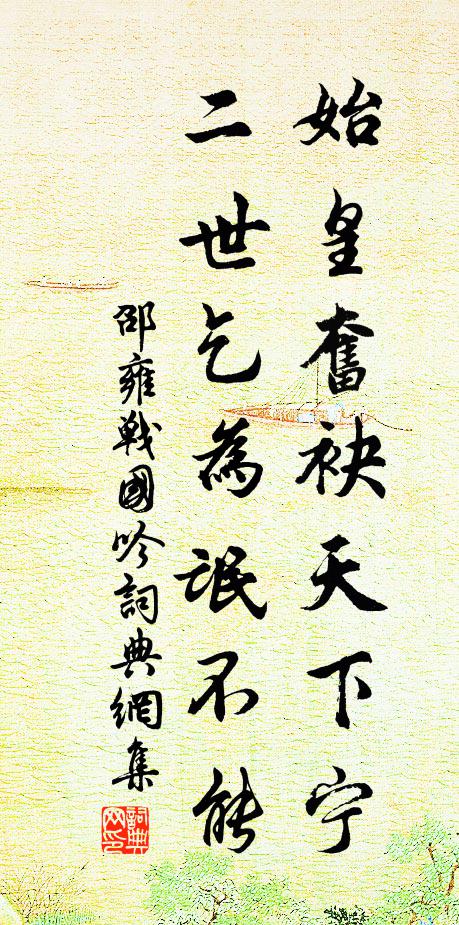 始皇奮袂天下宁
二世乞為氓不能
邵雍戰國吟詞典網集
詞典网印